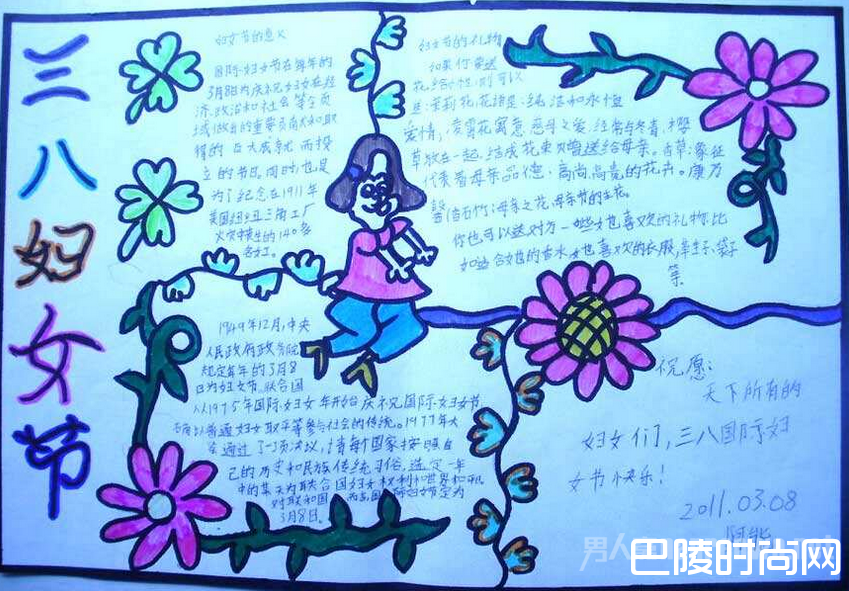 三八妇女节
妇女节的意义
国际妇女节在每年的
3月8日为庆祝妇女在经
济、政治和社会等全页
域做出的重要贡献和取
得的巨大成就而设
立的节日。同时也是
为了纪念在1911年
美国纽约三角工厂
火灾中丧生的140名
女工。
妇女节的礼物
如果你要送
花给她,则可以
送:茉莉花,花语是:纯洁和永恒
爱情,凌霄花寓意慈母之爱,经常与冬青,樱
草放在一起,结成花束,赠送给母亲。
代表着母亲品德,高尚,高贵的花卉。康乃
馨(香石竹):母亲之花,母亲节的主花。
你也可以送对方一些她也喜欢的礼物比
如适合她的香水,她也喜欢的衣服,
等
1949年12月,中央
人民政府政务院
规定每年的3月8
日为妇女节,联合国
从1975年国际妇女年开始庆祝国际妇女节
参与社会的传统。1977年大
会通过了一项决议,请每个国家按照自
己的历史和民族传统习俗,选定一年
中的某天为联合国妇女权利和世界和平
3月8日。
祝愿:
天下所有的
妇女们,三八国际妇
女节快乐!
2011.03.08
巴陵时尚网